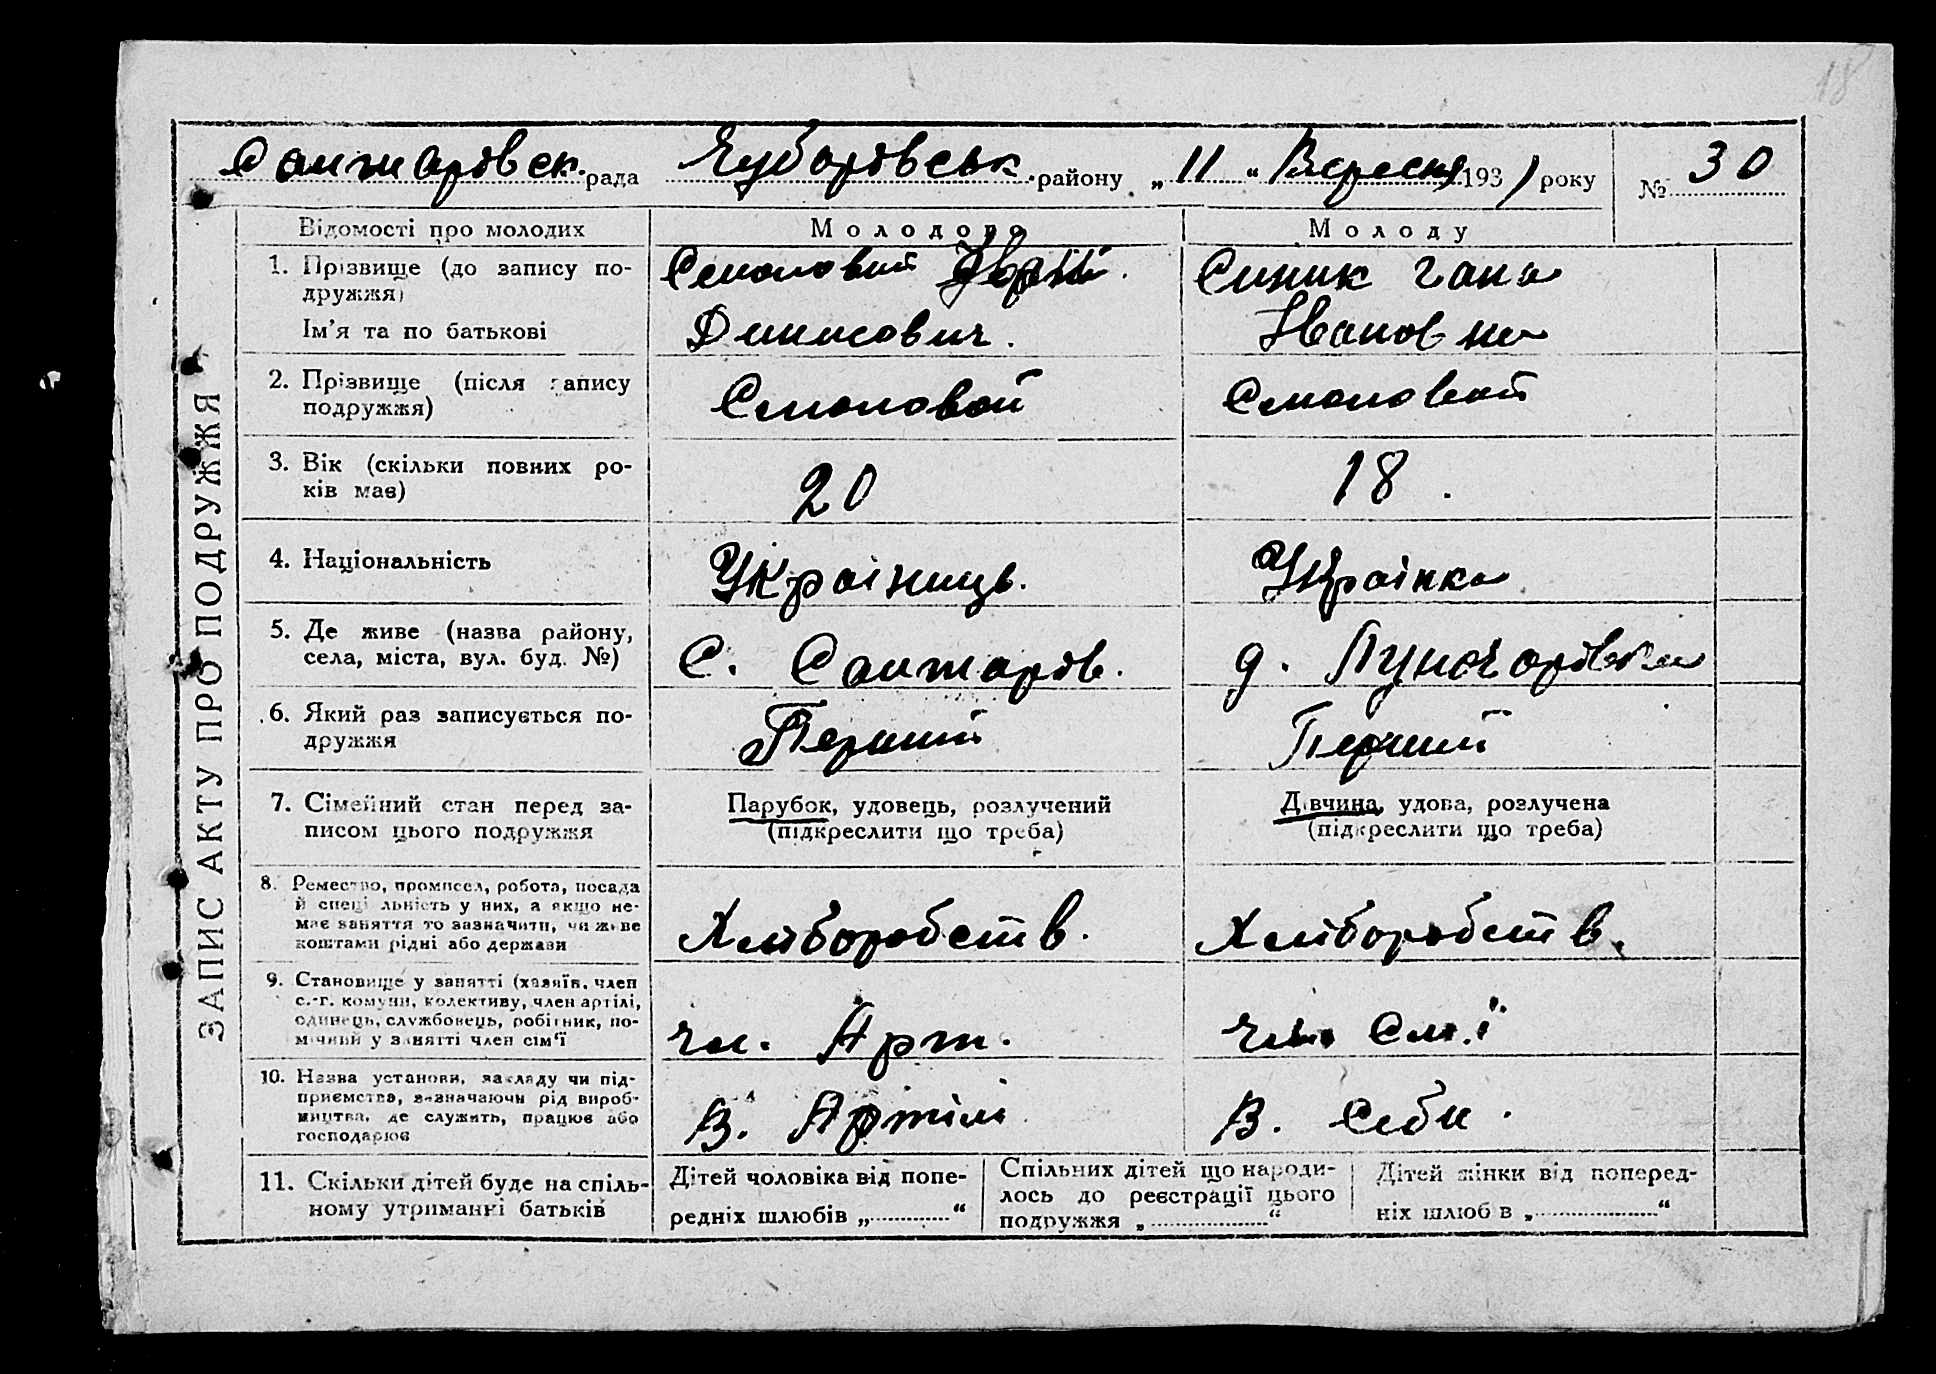 18
Сантарівськ. рада Чубарівськ. району „ 11 “ Вересня 1931 року № 30
ЗАПИС АКТУ ПРО ПОДРУЖЖЯ
Відомості про молодих
Молодого
Молоду
1. Прізвище (до запису по-
дружжя)
Ім'я та по батькові
Смоловий
Динисович.
Синик Гана
Ивановна
2. Прізвище (після запису
подружжя)
Смоловой
Смоловой
3. Вік (скільки повних ро-
ків має)
20
18.
4. Національність
Украінищь.
Украінка
5. Де живе (назва району,
села, міста, вул. буд. №)
С. Сантарів.
д.
6. Який раз записується по-
дружжя
Перший
Перший
7. Сімейний стан перед за-
писом цього подружжя
Парубок, удовець, розлучений
(підкреслити що треба)
Дівчина, удова, розлучена
(підкреслити що треба)
8. Ремество, промисел, робота, посада
й спеціяльність у них, а якщо не-
має заняття то зазначити, чи живе
коштами рідні або держави
Хліборобств.
Хліборобств.
9. Становище у занятті (хазяїн, член
с.-г. комуни, колективу, член артілі,
одинець, службовець, робітник, по-
мічний у занятті член сім'ї
чл. Арт.
чл. Сем.ї
10. Назва установи, закладу чи під-
приємства, зазначаючи рід вироб-
ництва, де служить, працює або
господарює
В. Артілі
В. Себи.
11. Скільки дітей буде на спіль-
ному утриманні батьків
Дітей чоловіка від попе-
редніх шлюбів „ “
Спільних дітей що народи-
лось до реєстрації цього
подружжя „ “
Дітей жінки від поперед-
ніх шлюбів „ “